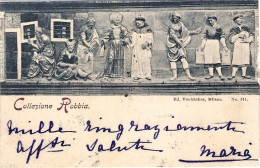 Collezione Robbia.
Ed. Vochieri, Milano. No. 311.
Mille ringraziamenti
affti saluti
Maria